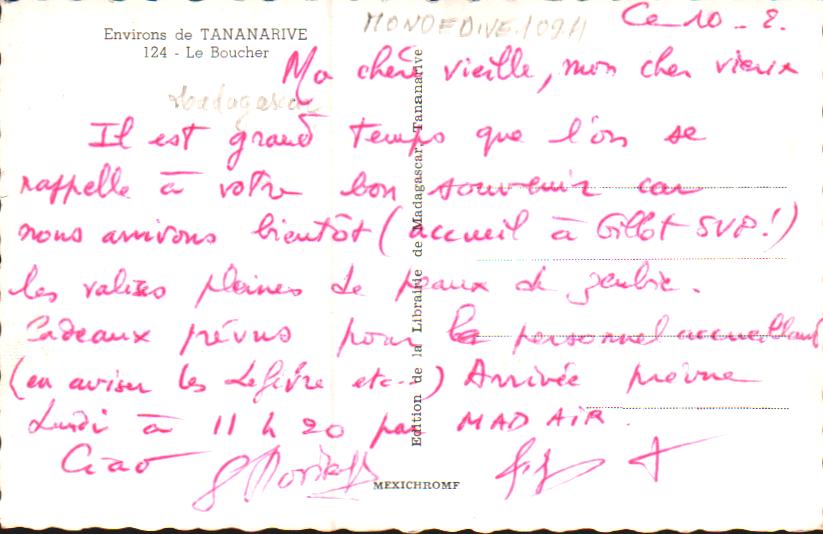 MONDEDIVE.1092H
Ce 10 - 8.
Environs de TANANARIVE
124 - Le Boucher
Ma chère vieille, mon cher vieux
Madagascar
Il est grand temps que l'on se
rappelle à votre bon souvenir car
nous arrivons bientôt (accueil à Gillot SVP!)
les valises pleines de peaux de zeubie.
Cadeaux prévus pour le personnel accueillant
(en aviser les Lefièvre etc...) Arrivée prévue
Lundi à 11 h 20 par MAD AIR.
Ciao
Edition de la Librairie de Madagascar, Tananarive
MEXICHROME